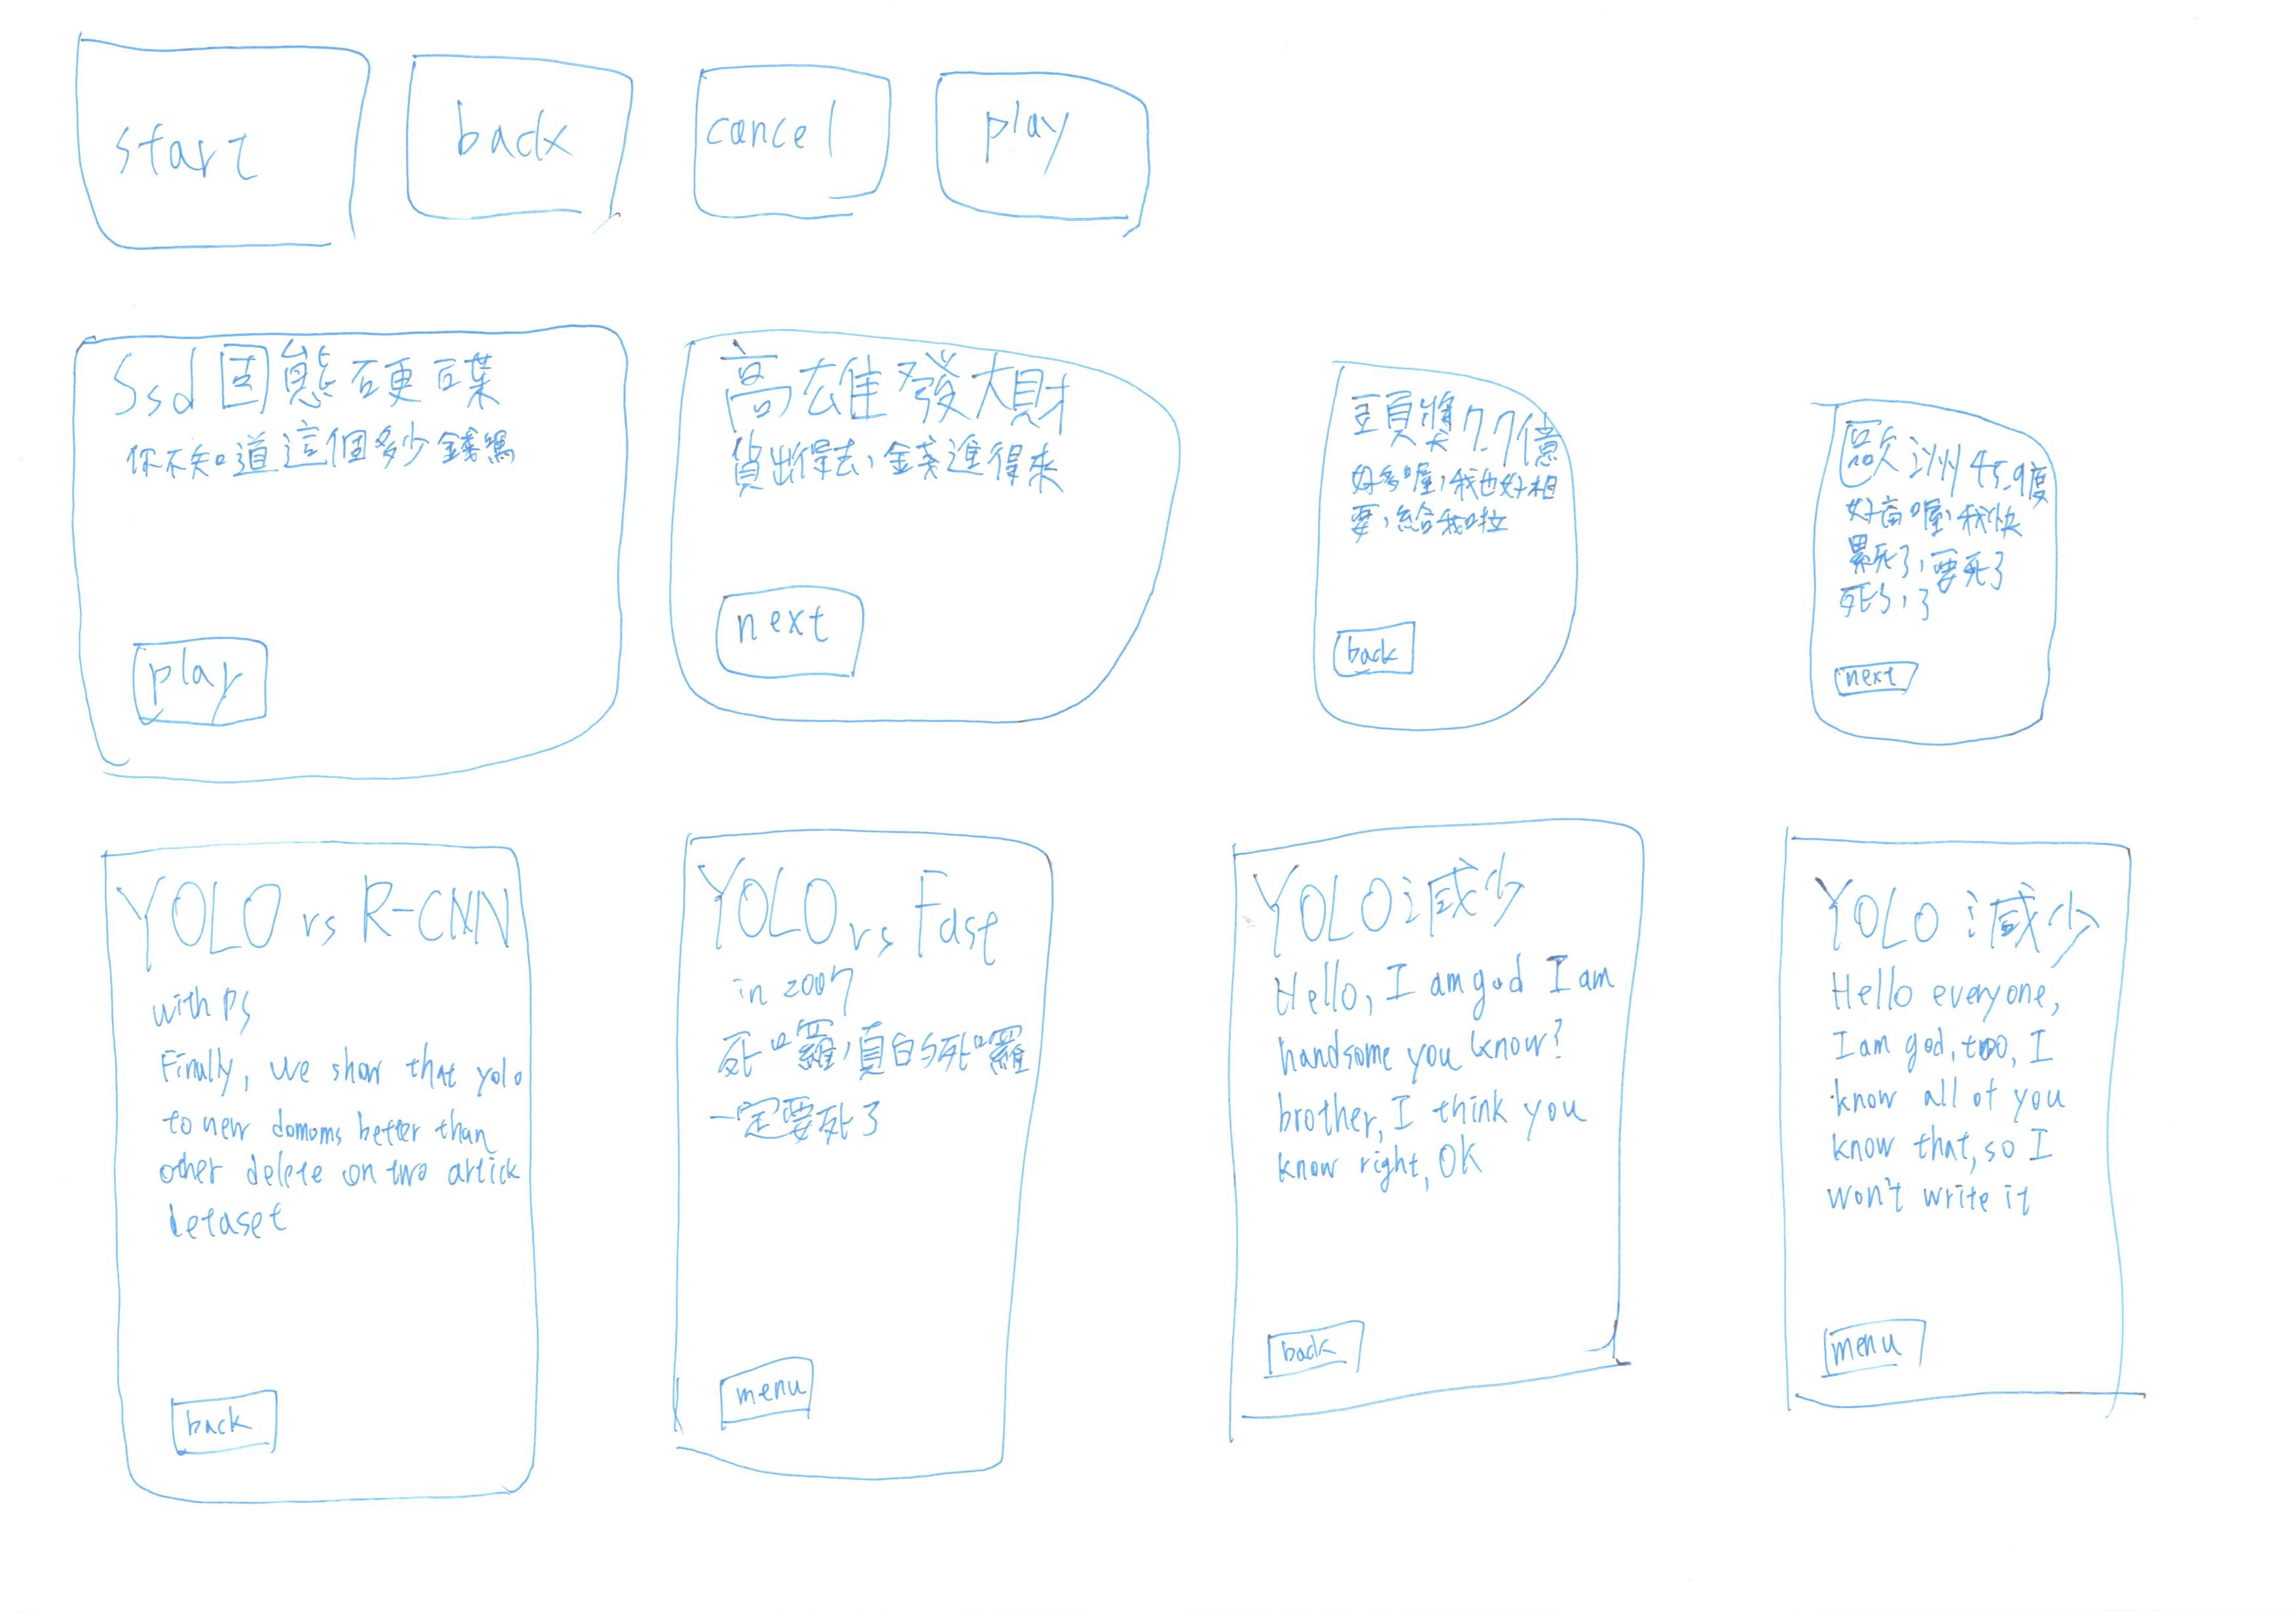 start
back
cancel
play
Ssd固態硬碟
你不知道這個多少錢嗎
play
高雄發大財
貨出得去，錢進得來
next
頭獎7.7億
好多喔，我也好想
要，給我啦
back
歐洲45.9度
好喔，我快
累死了，要死了
死了，了
next
YOLO vs R-CNN
with PS
Finally, we show that yolo
to new better than
other delete on two
detaset
back
YOLO vs Fast
in 2007
死囉，真的死囉
一定要死了
menu
YOLO減少
Hello, I am god I am
handsome you know?
brother, I think you
know right, OK
back
YOLO減少
Hello everyone,
I am god, too, I
know all of you
know that, so I
won't write it
menu